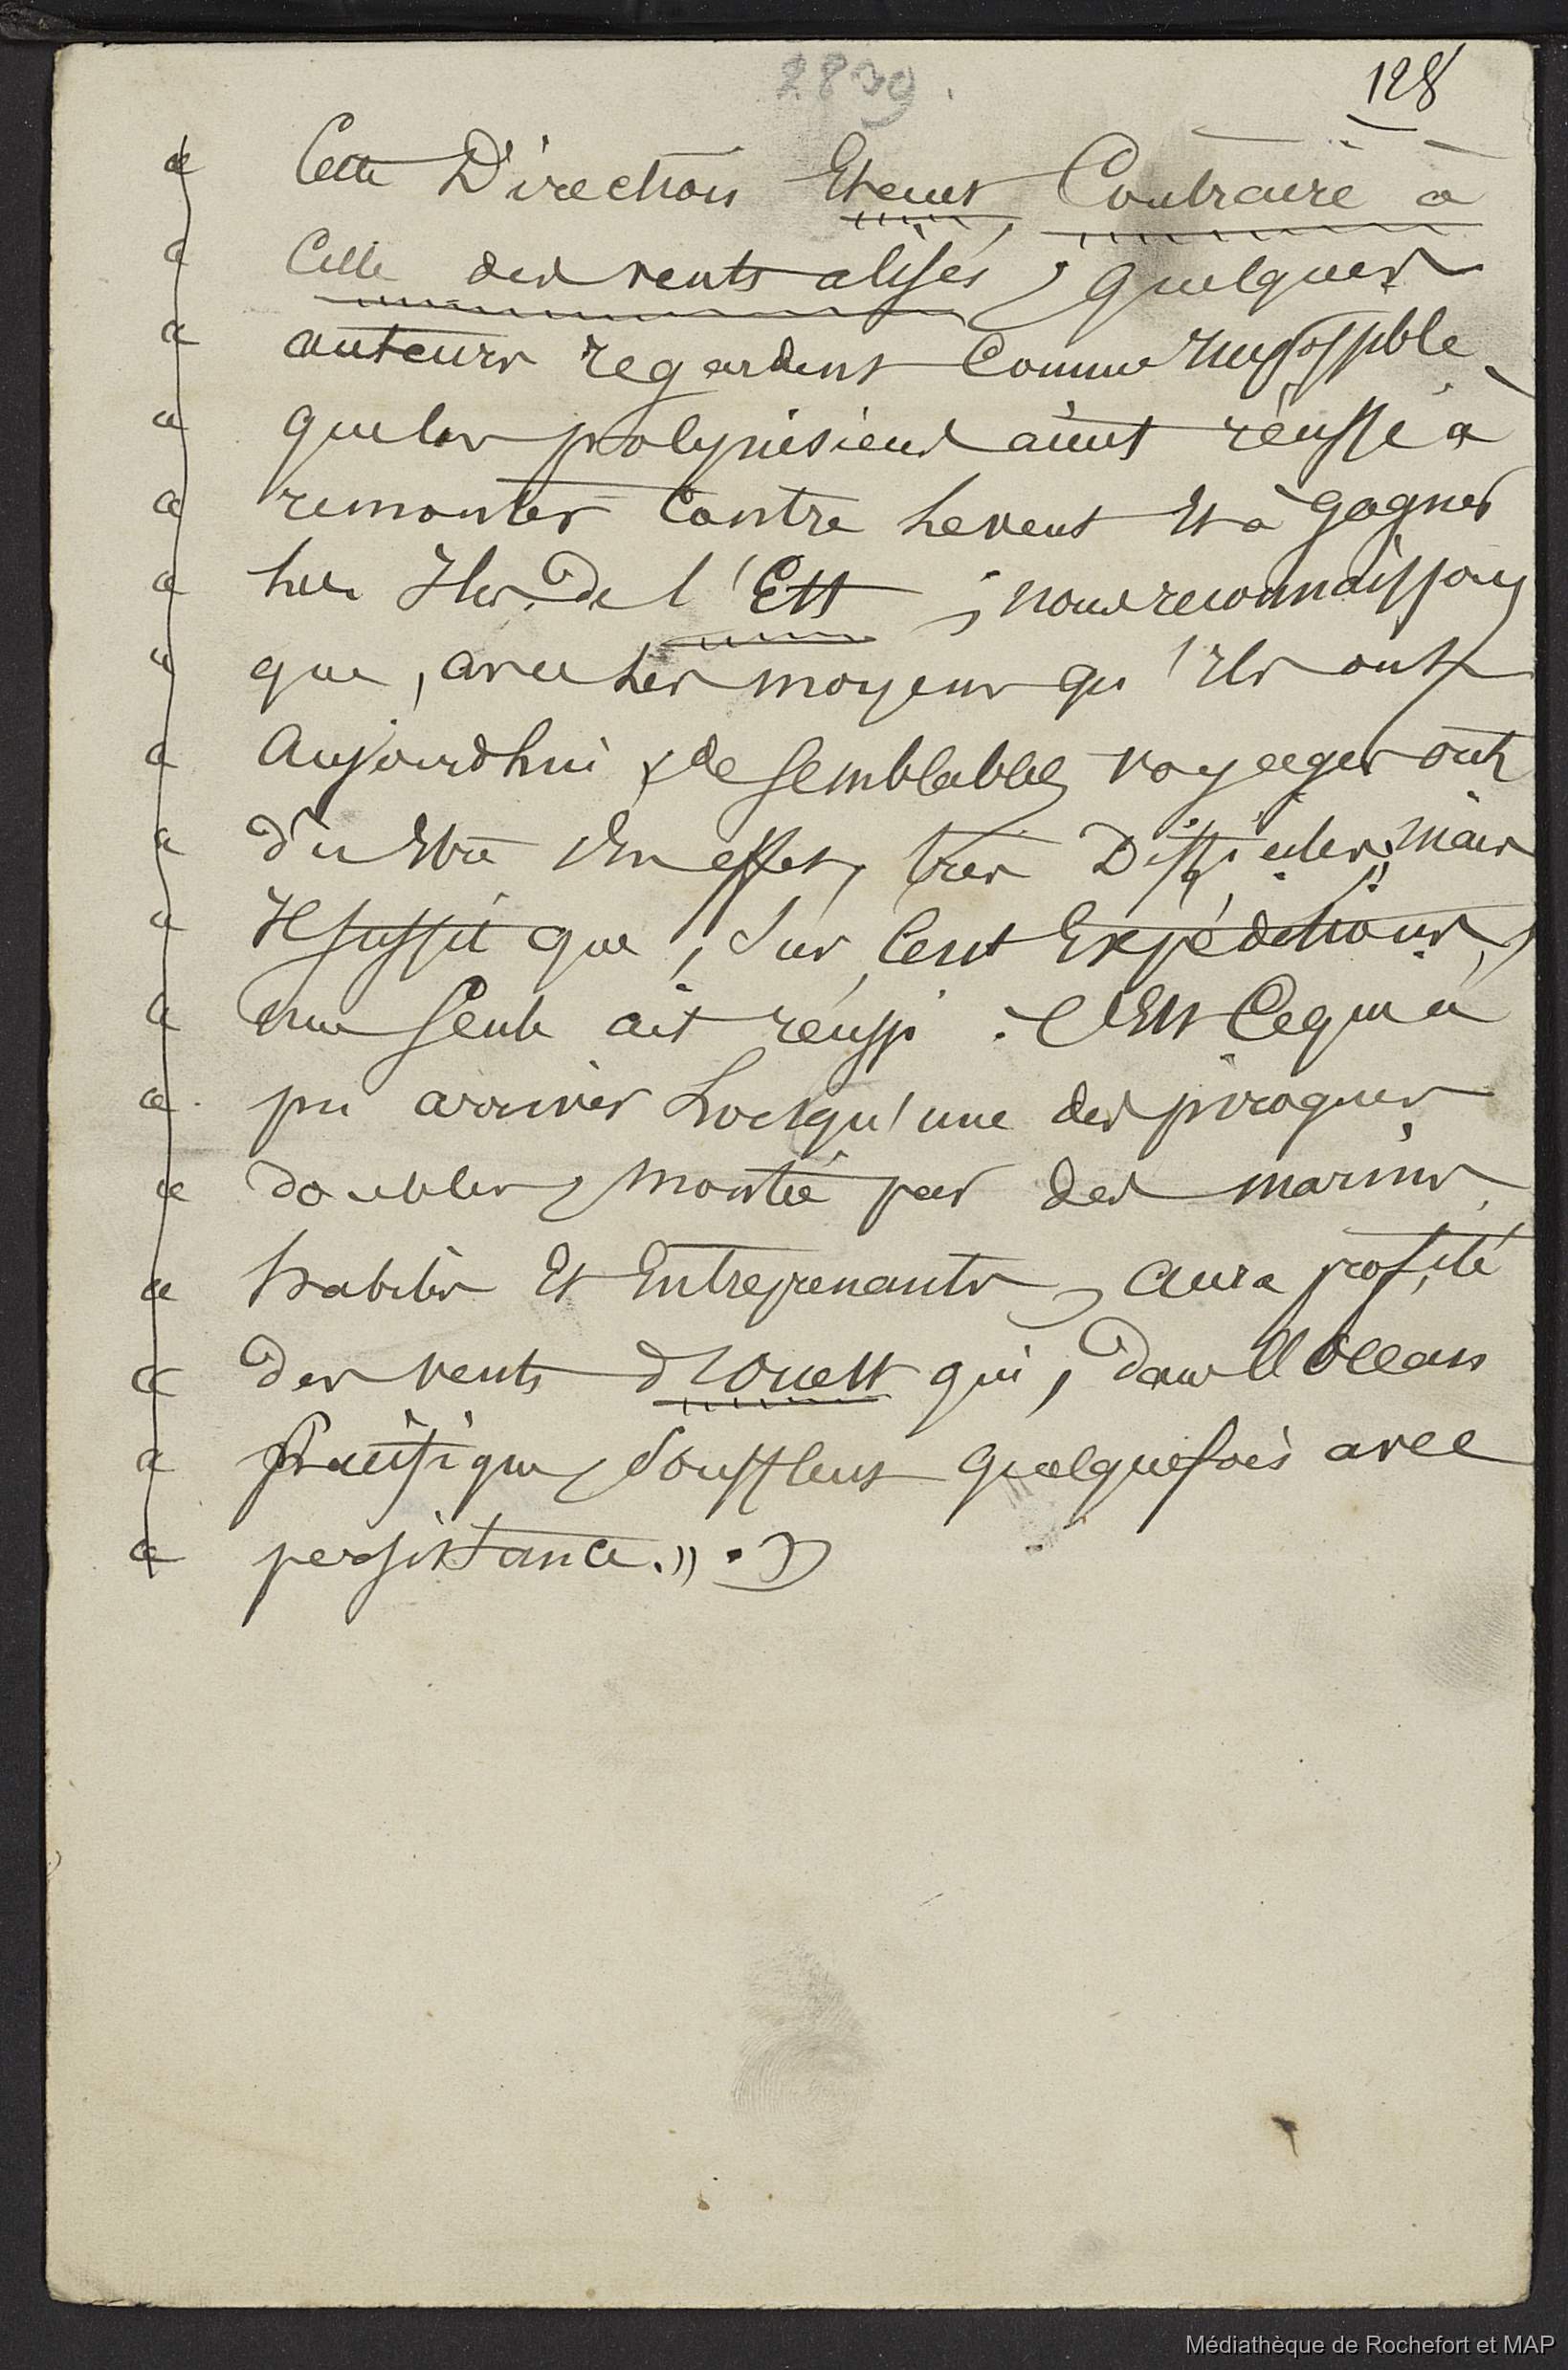 2839.
128
« Cette Direction Etant Contraire à
« Celle des vents alisés, quelques
« auteurs regardent comme impossible
« que les polynésiens aient réussi à
« remonter contre le vent et à gagner
« les Iles de l'Est ; nous reconnaissons
« que, avec les moyens qu'ils ont
« aujourd'hui, de semblables voyages ont
« du être en effet, très Difficiles; mais
« Il suffit que, sur cent Expéditions,
« une seule ait réussi. C'est ce qui a
« pu arriver lorsqu'une des pirogues
« doubles, montée par des marins
« habiles et Entreprenants, aura profité
« des vents d'Ouest qui, dans l'Océan
« Pacifique, soufflent quelquefois avec
« persistance. » .
Médiathèque de Rochefort et MAP